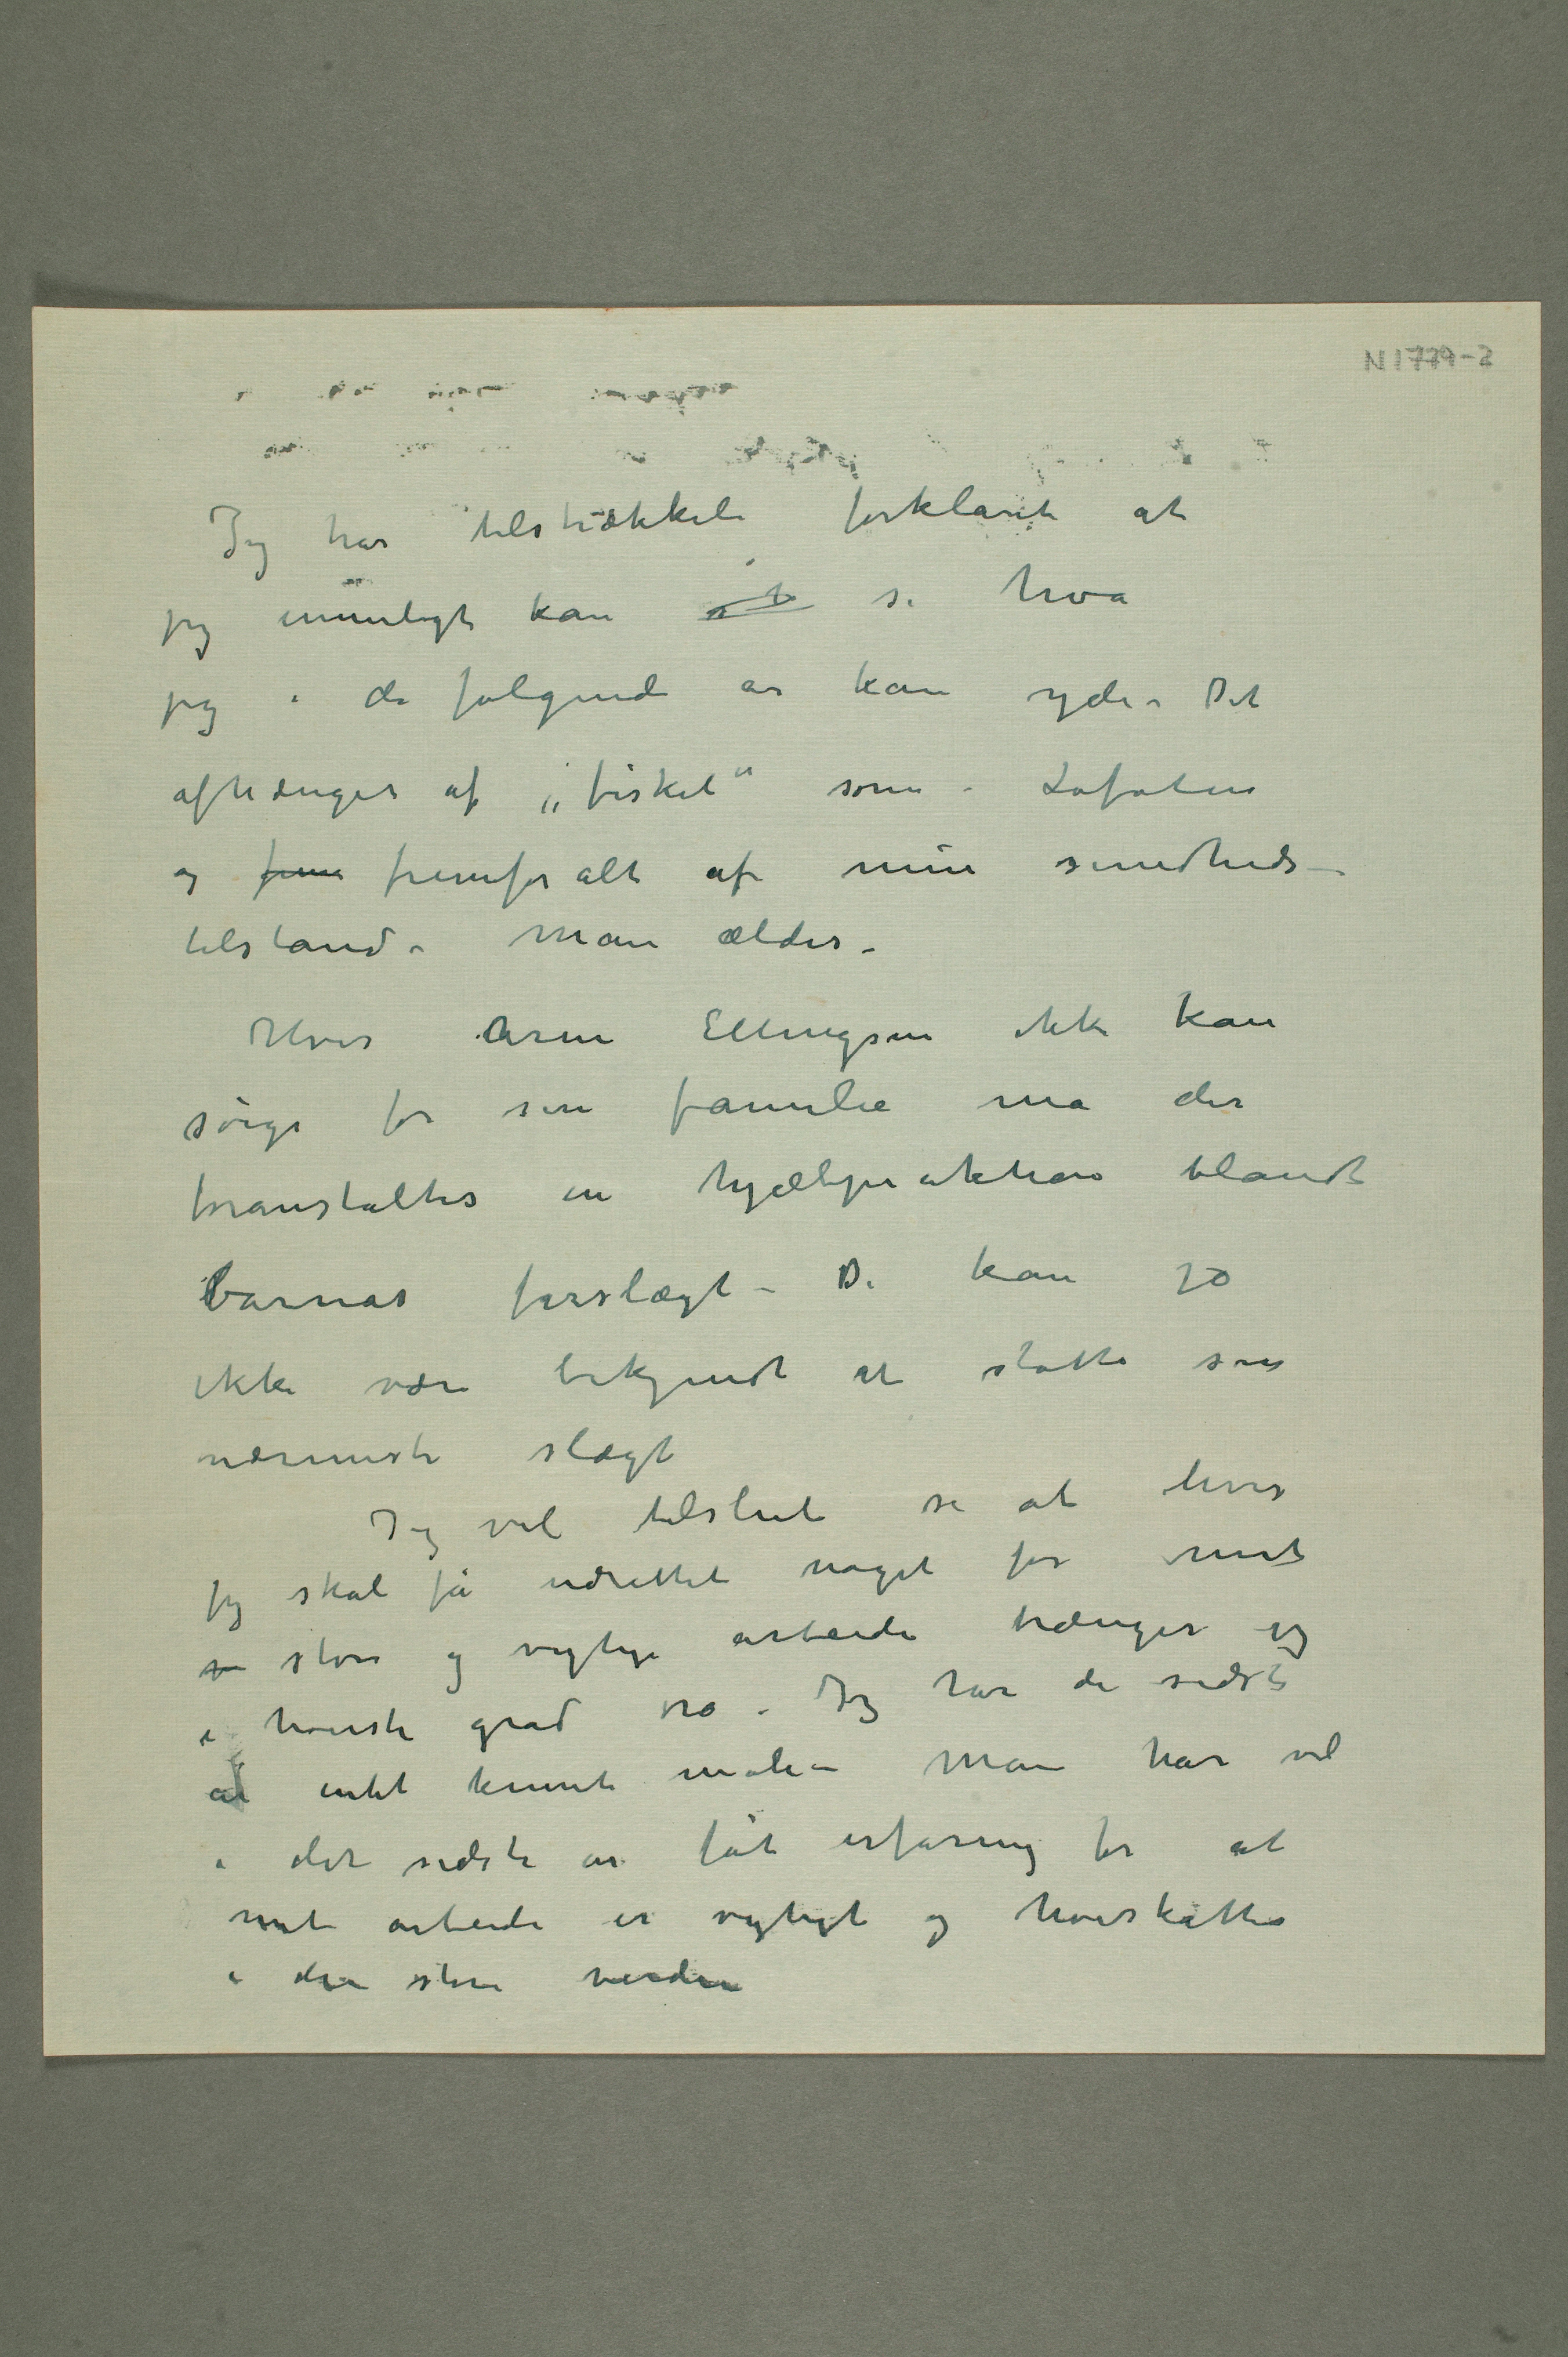 N 1779-2
Jeg har tilstrækkeli forklaret at
jeg umuligt kan si hva
jeg i de følgende år kan yde – Det
afhænger af „fisket“ som i Lofoten
og frem fremfor alt af min sundheds–
tilstand – Man ældes –
Hvis Arne Ellingsen ikke kan
sørge for sin familie må der
foranstaltes en hjælpeaktion blandt
barnas farslægt – De kan jo
ikke være bekjendt at støtte sin
nærmeste slægt
Jeg vil tilslut si at hvis
jeg skal få udrettet noget for mit
store og vigtige arbeide trænger jeg
i høieste grad ro – Jeg har de sidste
år intet kunnet male – Man har vel
i det sidste år fåt erfaring for at
mit arbeide er vigtigt og høiskattes
i den store verden